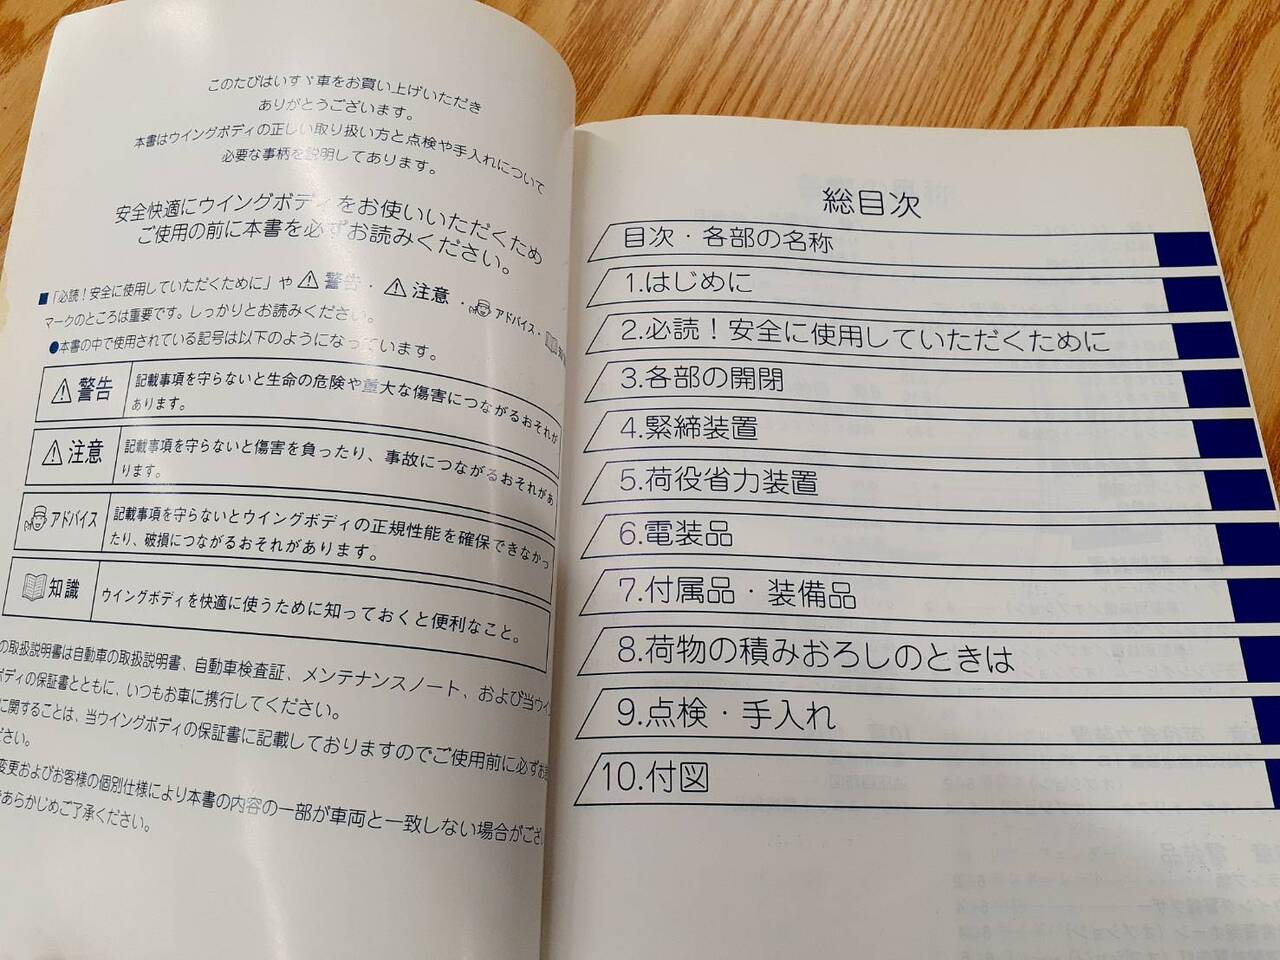 このたびはいすゞ車をお買い上げいただき
ありがとうございます。
本書はウイングボディの正しい取り扱い方と点検や手入れについて
必要な事柄を説明してあります。
安全快適にウイングボディをお使いいただくため
ご使用の前に本書を必ずお読みください。
■「必読！安全に使用していただくために」や 警告・ 注意・ アドバイス・
マークのところは重要です。しっかりとお読みください。
●本書の中で使用されている記号は以下のようになっています。
警告
記載事項を守らないと生命の危険や重大な傷害につながるおそれが
あります。
注意
記載事項を守らないと傷害を負ったり、事故につながるおそれがあ
ります。
アドバイス
記載事項を守らないとウイングボディの正規性能を確保できなかっ
たり、破損につながるおそれがあります。
知識
ウイングボディを快適に使うために知っておくと便利なこと。
の取扱説明書は自動車の取扱説明書、自動車検査証、メンテナンスノート、および当ウイ
ボディの保証書とともに、いつもお車に携行してください。
に関することは、当ウイングボディの保証書に記載しておりますのでご使用前に必ずお
ださい。
変更およびお客様の個別仕様により本書の内容の一部が車両と一致しない場合がござ
であらかじめご了承ください。
総目次
目次・各部の名称
1.はじめに
2.必読！安全に使用していただくために
3.各部の開閉
4.緊締装置
5.荷役省力装置
6.電装品
7.付属品・装備品
8.荷物の積みおろしのときは
9.点検・手入れ
10.付図